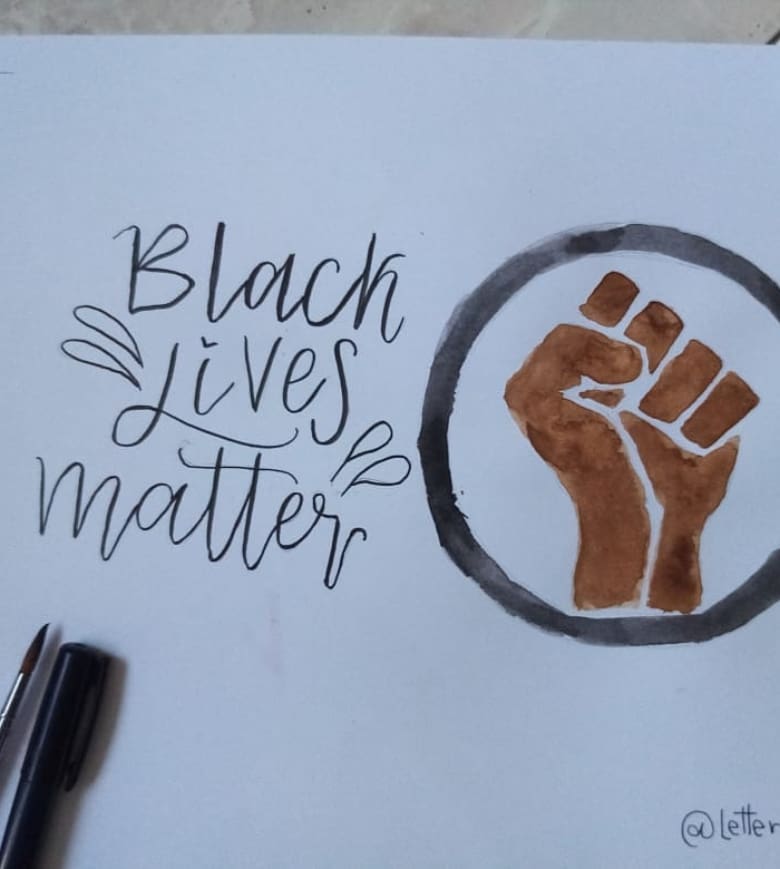 Black
Lives
matter
@Letter